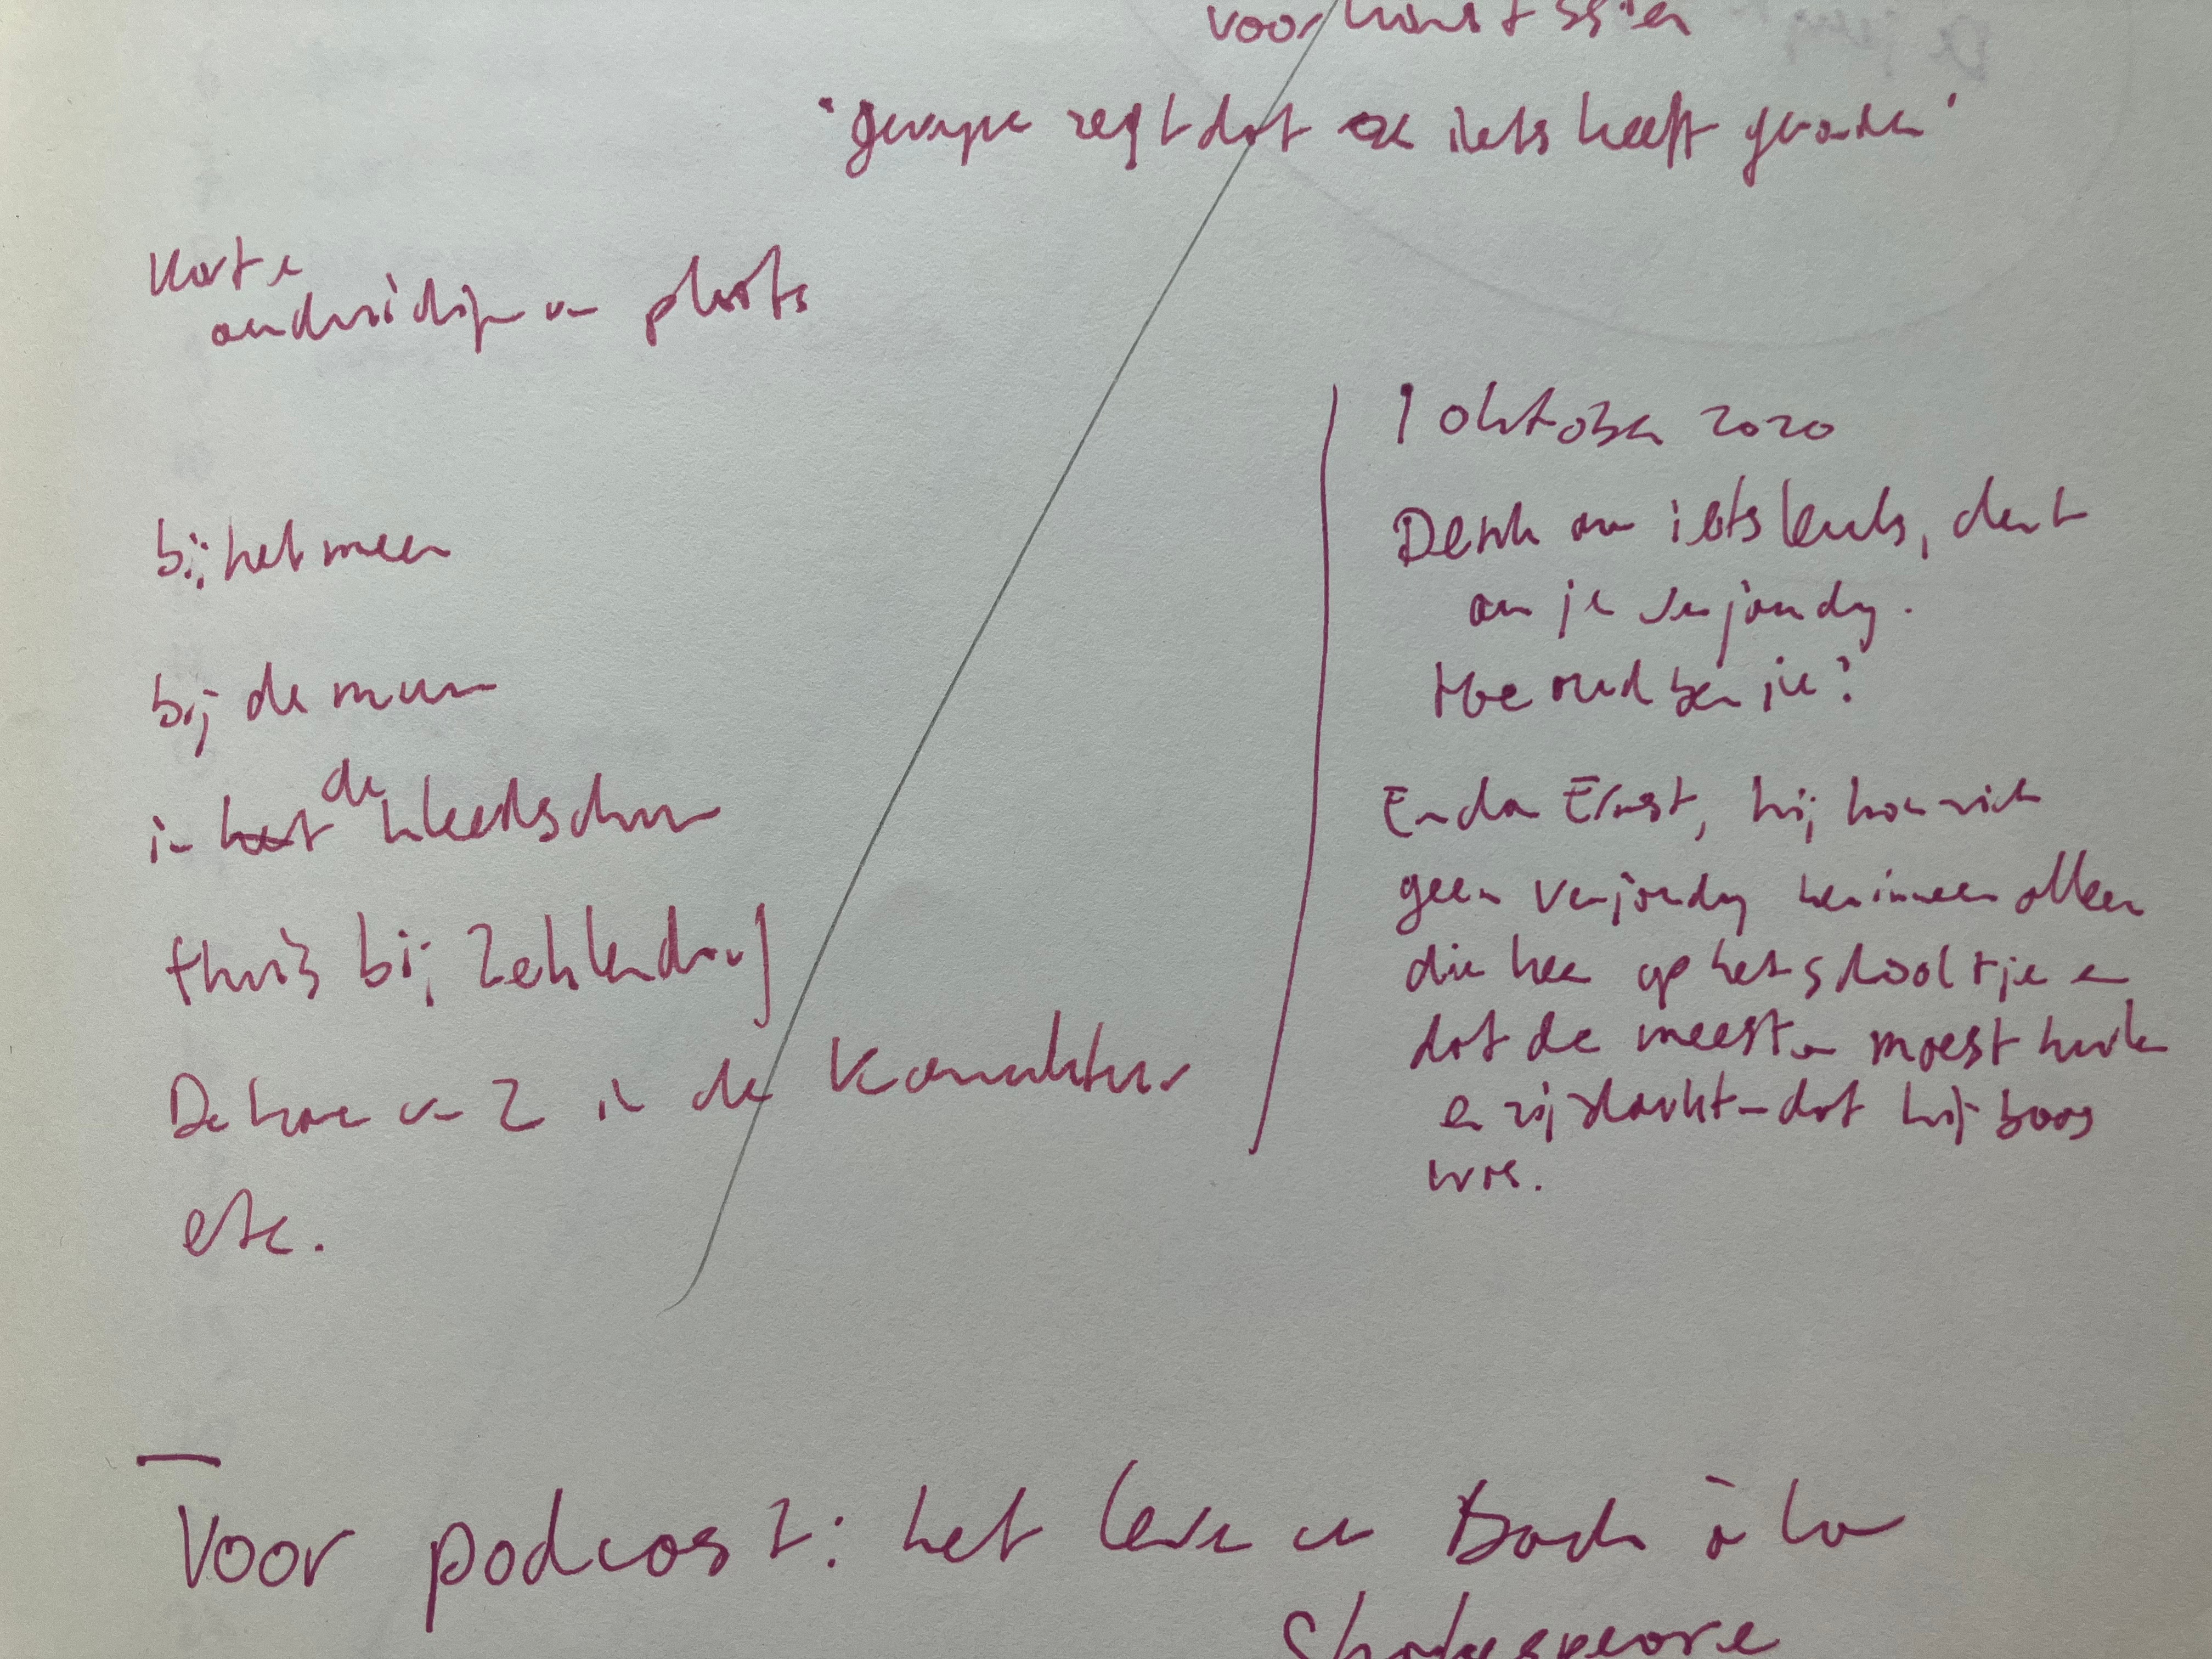 voor
zegt dat ze iets heeft gevonden'
Korte
aanduiding van plaats
bij het meer
bij de muur
in het de kleedschuur
thuis bij Zehlendorf
De hoer van Z in de
etc.
1 oktober 2020
Denk aan iets leuks, denk
aan je verjaardag.
Hoe oud ben jij?
En dan Ernst, hij kon zich
geen verjaardag herinneren alleen
die keer op het schooltje en
dat de meester moest huilen
en zij dachten dat hij boos
was.
Voor podcast: het leven van Bach à la
Shakespeare